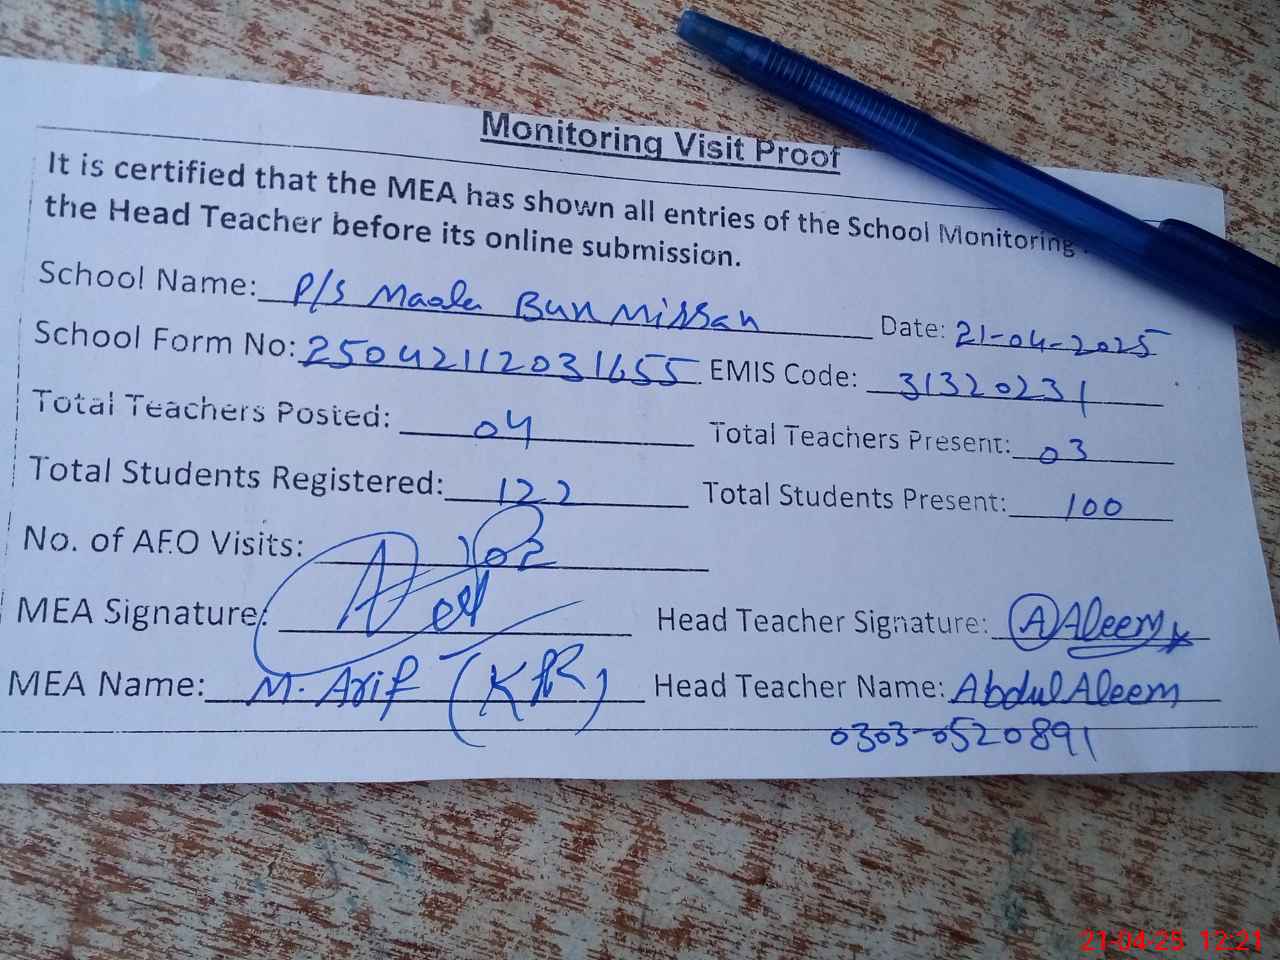 Monitoring Visit Proof
It is certified that the MEA has shown all entries of the School Monitoring
the Head Teacher before its online submission.
School Name: P/S Maala Bun Missan Date: 21-04-2025
School Form No: 25042112031655 EMIS Code: 31320231
Total Teachers Posted: 04 Total Teachers Present: 03
Total Students Registered: 122 Total Students Present: 100
No. of AEO Visits: 02
MEA Signature: Head Teacher Signature: A Aleem
MEA Name: M. Arif Head Teacher Name: Abdul Aleem
0303-0520891
21-04-25 12:21